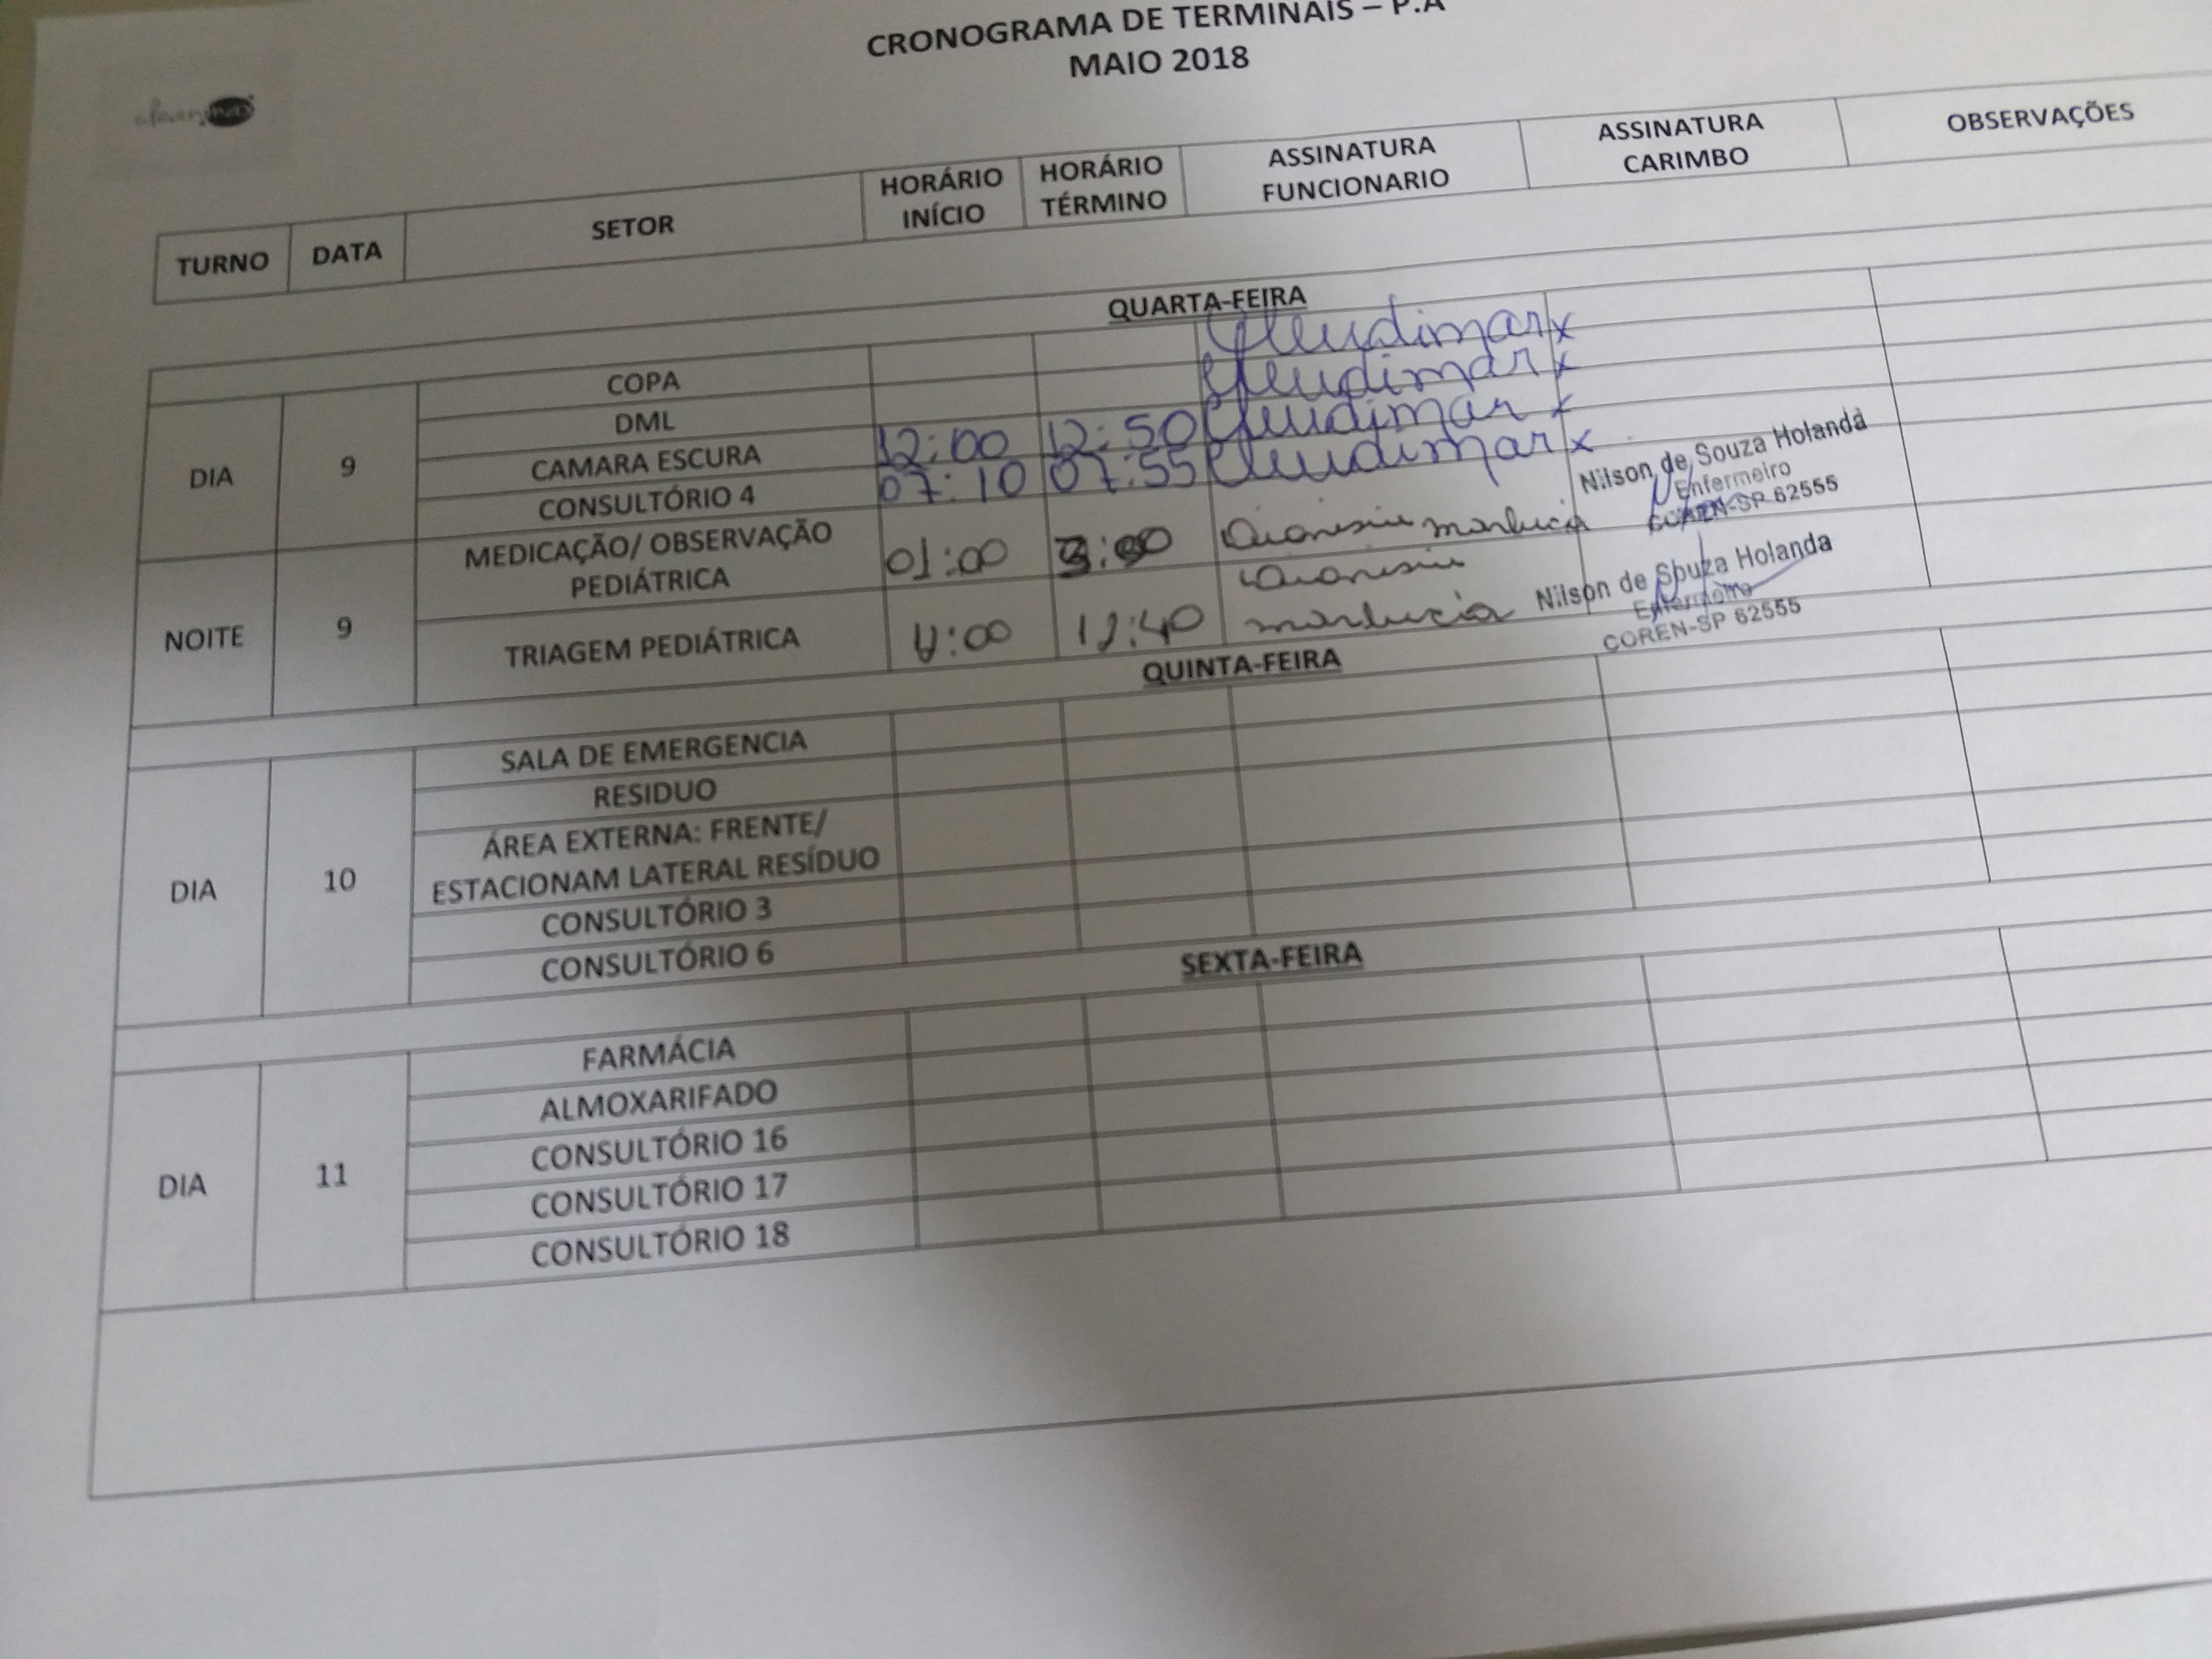 CRONOGRAMA DE TERMINAIS – P.A
MAIO 2018
TURNO DATA SETOR HORÁRIO INÍCIO HORÁRIO TÉRMINO ASSINATURA FUNCIONARIO ASSINATURA CARIMBO OBSERVAÇÕES
QUARTA-FEIRA
DIA 9
COPA Cleudimar x
DML Cleudimar x
CAMARA ESCURA 12:00 12:50 Cleudimar x
CONSULTÓRIO 4 07:10 07:55 Cleudimar x
Nilson de Souza Holanda
Enfermeiro
COREN-SP 62555
NOITE 9
MEDICAÇÃO/ OBSERVAÇÃO
PEDIÁTRICA 01:00 marlucia
TRIAGEM PEDIÁTRICA :00 12:40 marlucia
Nilson de Souza Holanda
Enfermeiro
COREN-SP 62555
QUINTA-FEIRA
DIA 10
SALA DE EMERGENCIA
RESIDUO
ÁREA EXTERNA: FRENTE/
ESTACIONAM LATERAL RESÍDUO
CONSULTÓRIO 3
CONSULTÓRIO 6
SEXTA-FEIRA
DIA 11
FARMÁCIA
ALMOXARIFADO
CONSULTÓRIO 16
CONSULTÓRIO 17
CONSULTÓRIO 18